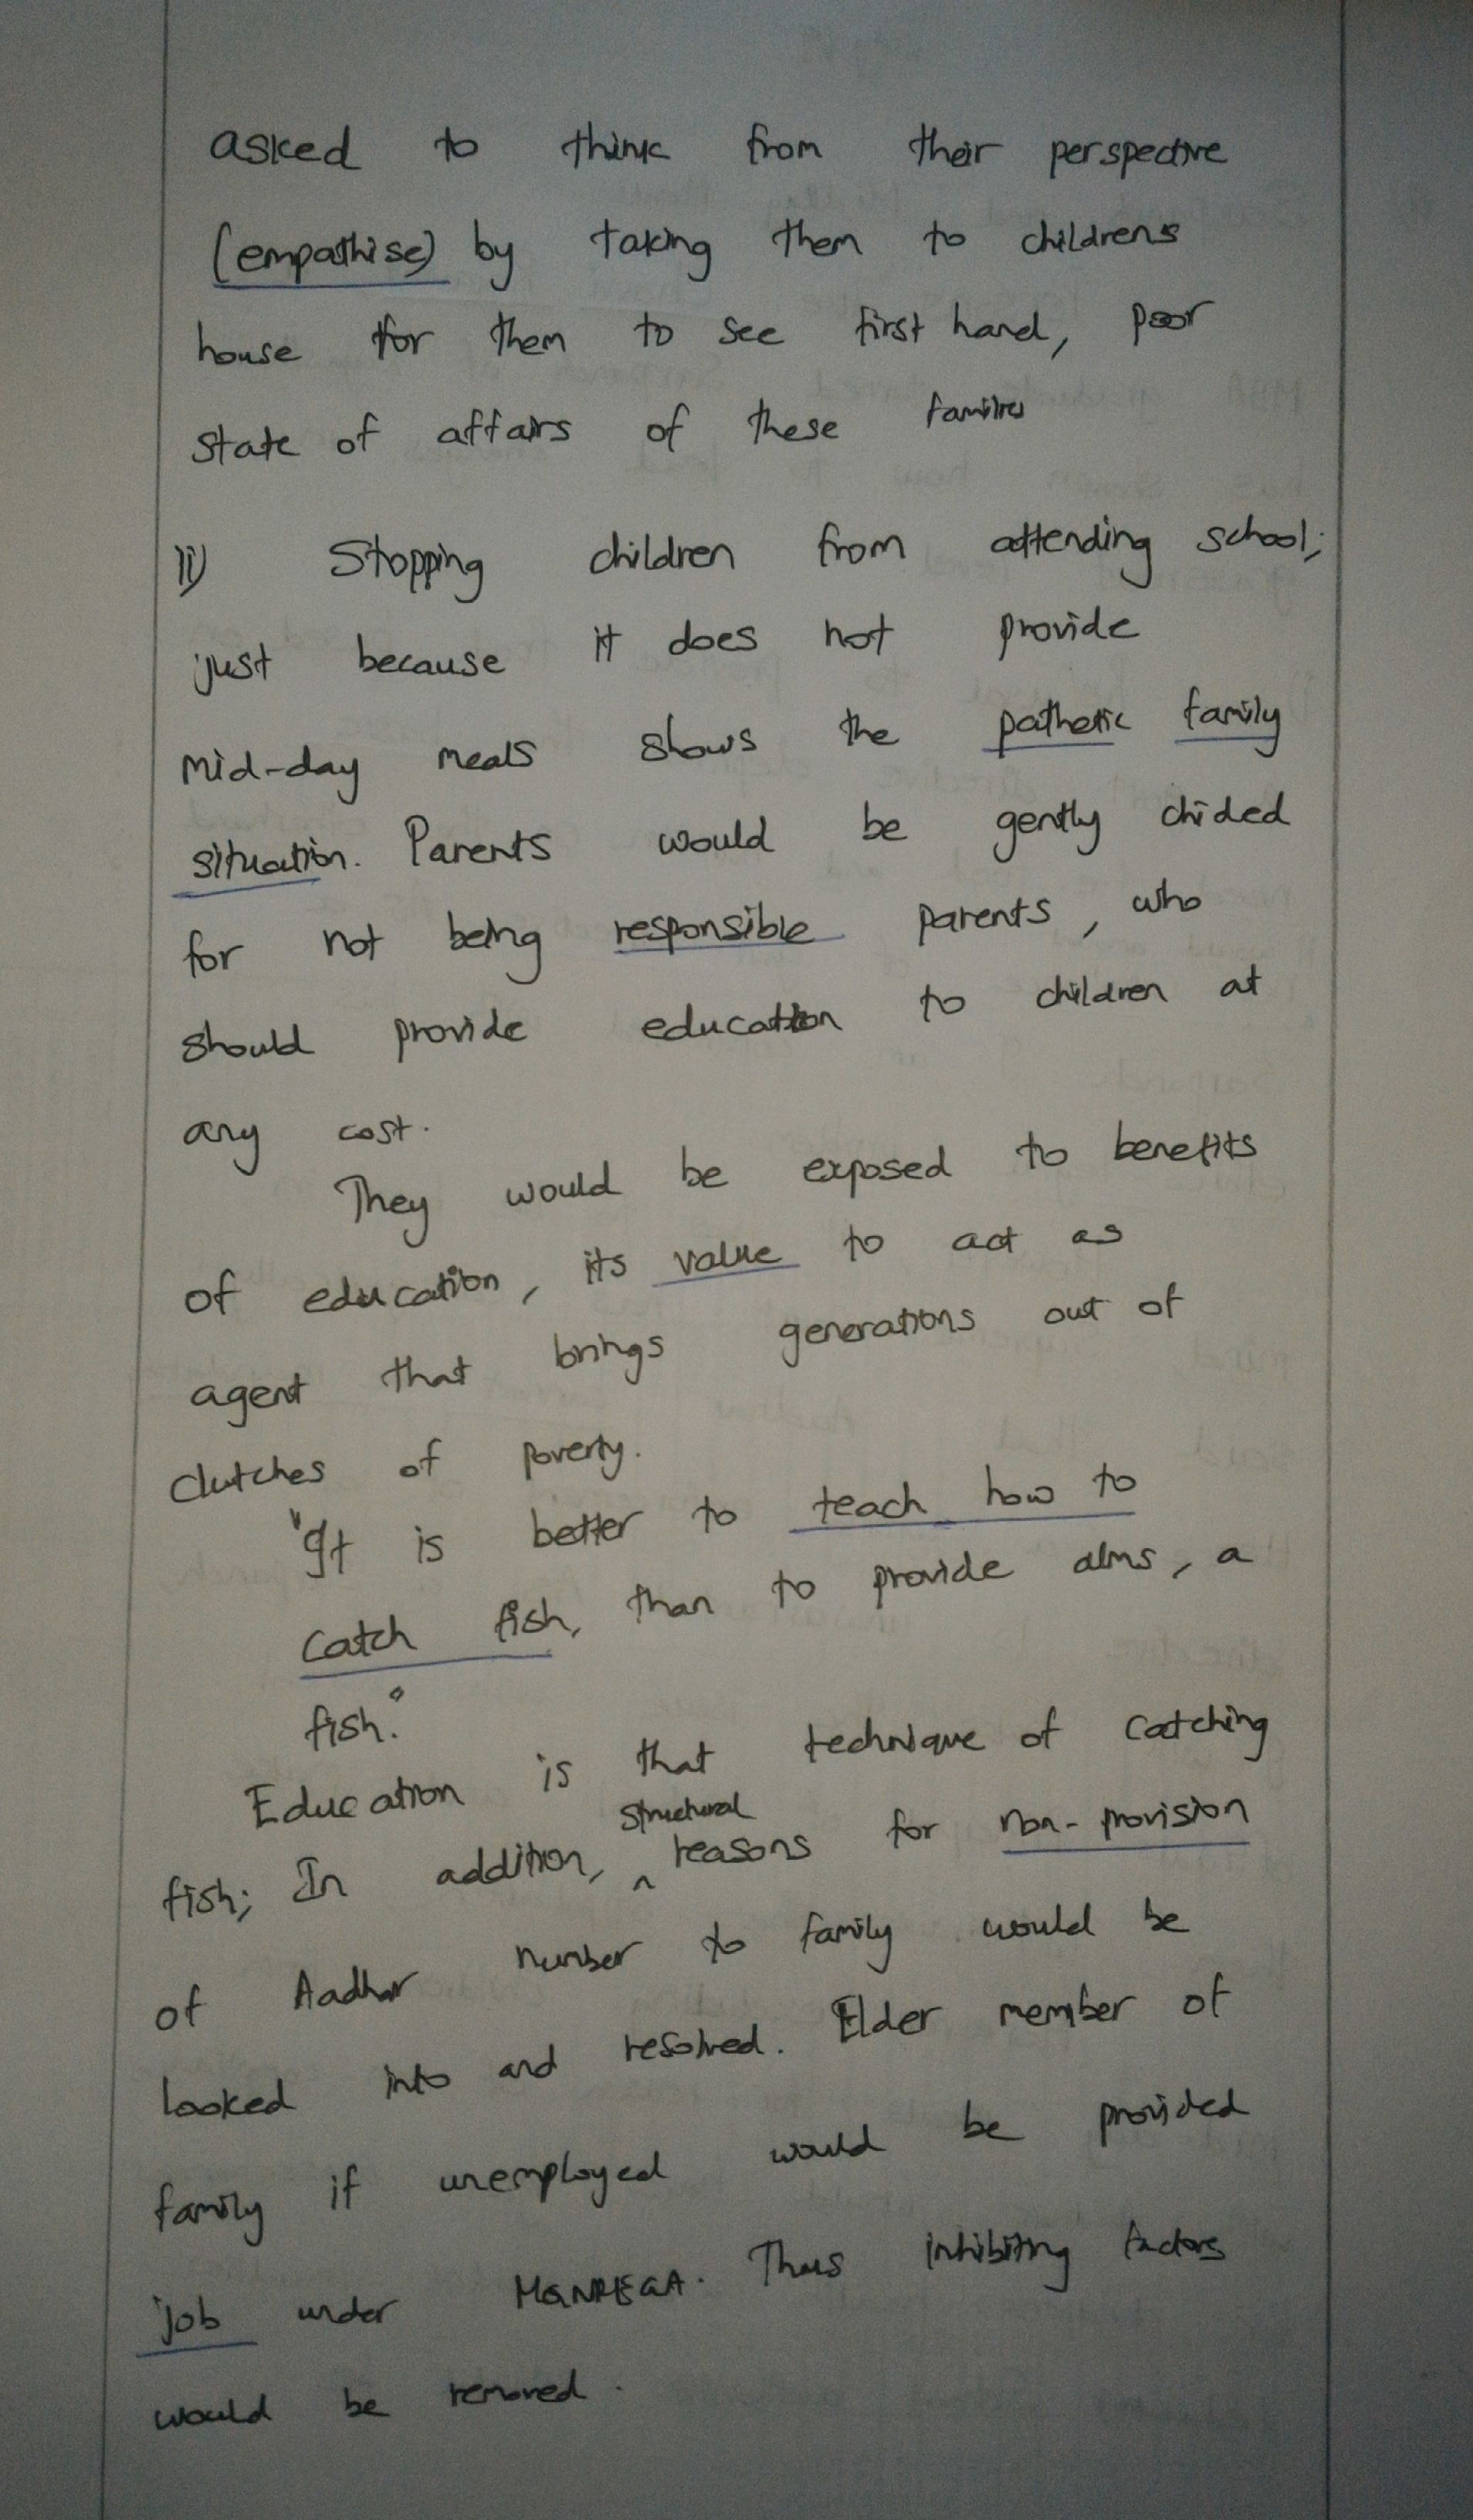 asked to think from their perspective
(empathise) by taking them to childrens
house for them to see first hand, poor
state of affairs of these families
ii) Stopping children from attending school;
just because it does not provide
mid-day meals shows the pathetic family
situation. Parents would be gently chided
for not being responsible parents, who
should provide education to children at
any cost.
They would be exposed to benefits
of education, its value to act as
agent that brings generations out of
clutches of poverty.
"It is better to teach how to
catch fish, than to provide alms, a
fish."
Education is that technique of catching
structural
fish; In addition, ^ reasons for non-provision
of Aadhar number to family would be
looked into and resolved. Elder member of
family if unemployed would be provided
job under MGNREGA. Thus inhibiting factors
would be removed.